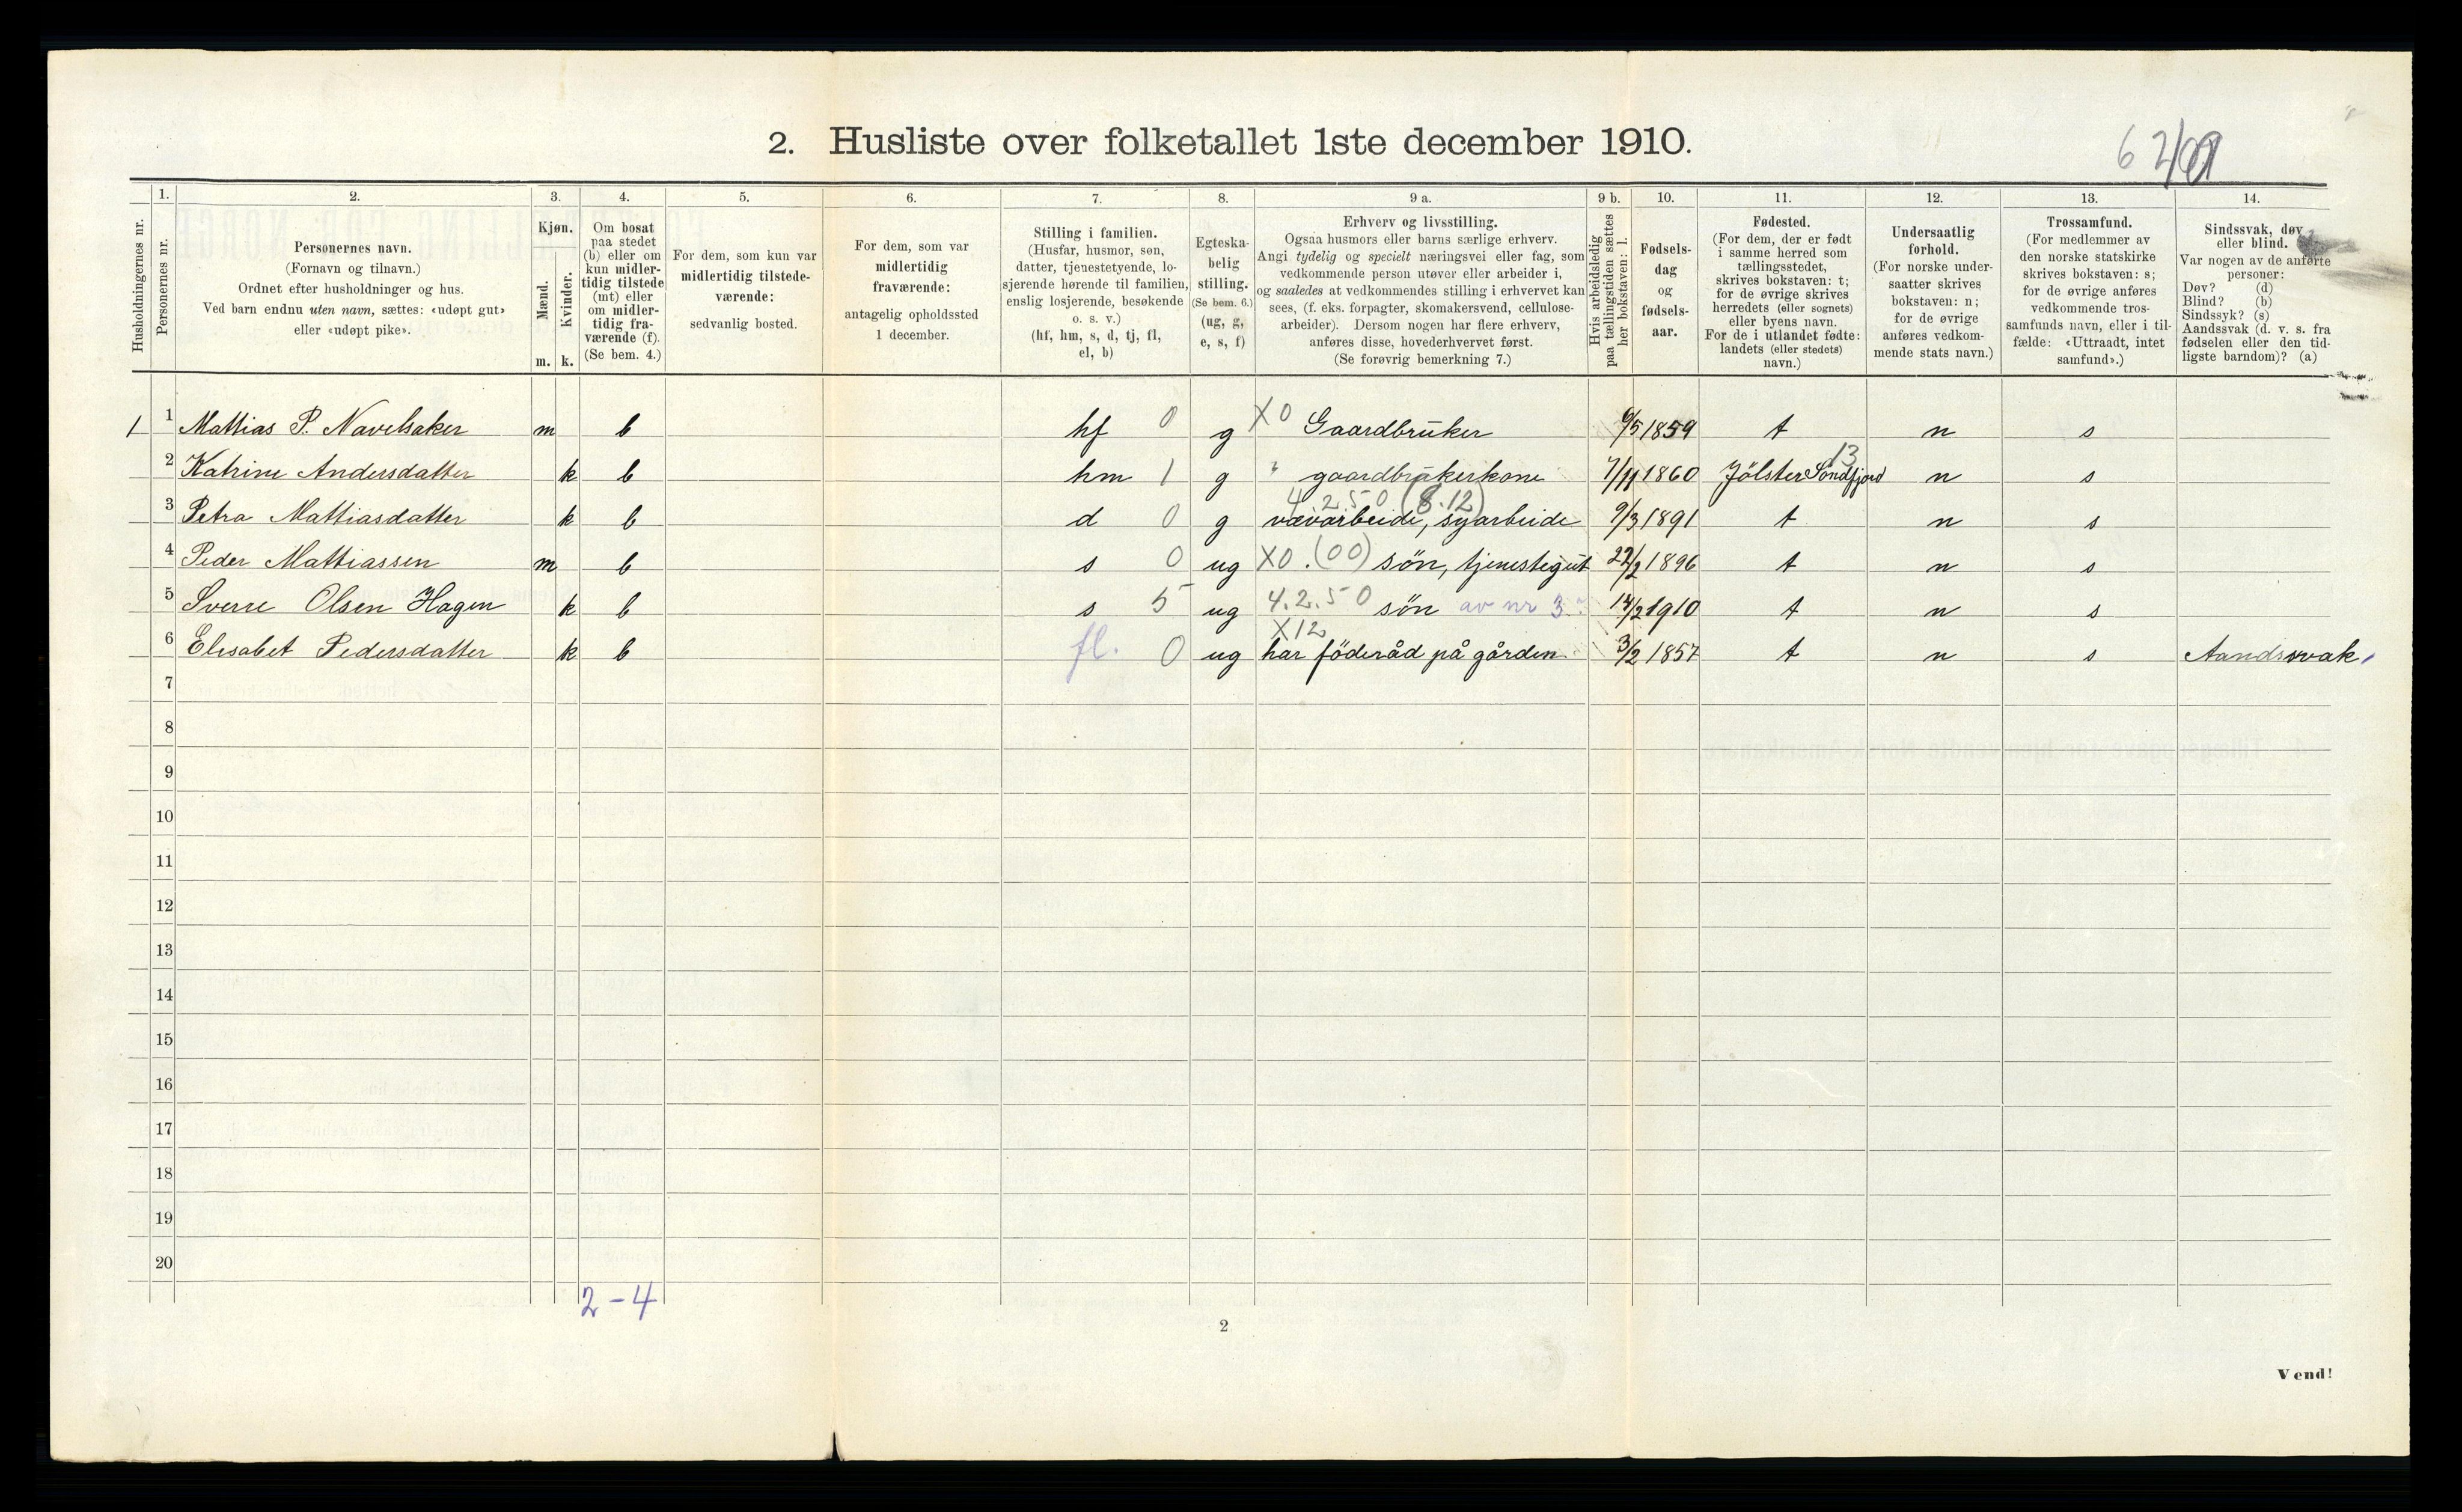 2. Husliste over folketallet 1ste december 1910.
1. 2. 3. 4. 5. 6. 7. 8. 9 a. 9 b. 10. 11. 12. 13. 14.
Husholdningernes nr.
Personernes nr.
Personernes navn.
(Fornavn og tilnavn.)
Ordnet efter husholdninger og hus.
Ved barn endnu uten navn, sættes: «udøpt gut»
eller «udøpt pike».
Kjøn.
Mænd.
Kvinder.
m. k.
Om bosat
paa stedet
(b) eller om
kun midler-
tidig tilstede
(mt) eller
om midler-
tidig fra-
værende (f).
(Se bem. 4.)
For dem, som kun var
midlertidig tilstede-
værende:
sedvanlig bosted.
For dem, som var
midlertidig
fraværende:
antagelig opholdssted
1 december.
Stilling i familien.
(Husfar, husmor, søn,
datter, tjenestetyende, lo-
sjerende hørende til familien,
enslig losjerende, besøkende
o. s. v.)
(hf, hm, s, d, tj, fl,
el, b)
Egteska-
belig
stilling.
(Se bem. 6.)
(ug, g,
e, s, f)
Erhverv og livsstilling.
Ogsaa husmors eller barns særlige erhverv.
Angi tydelig og specielt næringsvei eller fag, som
vedkommende person utøver eller arbeider i,
og saaledes at vedkommendes stilling i erhvervet kan
sees, (f. eks. forpagter, skomakersvend, cellulose-
arbeider). Dersom nogen har flere erhverv,
anføres disse, hovederhvervet først.
(Se forøvrig bemerkning 7.)
Hvis arbeidsledig
paa tællingstiden sættes
her bokstaven: l.
Fødsels-
dag
og
fødsels-
aar.
Fødested.
(For dem, der er født
i samme herred som
tællingsstedet,
skrives bokstaven: t;
for de øvrige skrives
herredets (eller sognets)
eller byens navn.
For de i utlandet fødte:
landets (eller stedets)
navn.)
Undersaatlig
forhold.
(For norske under-
saatter skrives
bokstaven: n;
for de øvrige
anføres vedkom-
mende stats navn.)
Trossamfund.
(For medlemmer av
den norske statskirke
skrives bokstaven: s;
for de øvrige anføres
vedkommende tros-
samfunds navn, eller i til-
fælde: «Uttraadt, intet
samfund».)
Sindssvak, døv
eller blind.
Var nogen av de anførte
personer:
Døv? (d)
Blind? (b)
Sindssyk? (s)
Aandssvak (d. v. s. fra
fødselen eller den tid-
ligste barndom)? (a)
1 1 Mattias P. Navelsaker m b hf 0 g X0 Gaardbruker 6/5 1859 t n s
2 Katrine Andersdatter k b hm 1 g " gaardbrukerkone 7/11 1860 Jölster Söndfjord 13 n s
3 Petra Mattiasdatter k b d 0 g 4.2.50 (8.12) vævarbeide, syarbeide 9/3 1891 t n s
4 Peder Mattiassen m b s 0 ug X0.(00) sön, tjenestegut 22/2 1896 t n s
5 Sverre Olsen Hagen k b s 5 ug 4.2.50 sön av nr 3. 14/2 1910 t n s
6 Elisabet Pedersdatter k b fl. 0 ug X12 har föderåd på gården 3/2 1857 t n s Aandssvak
7
8
9
10
11
12
13
14
15
16
17
18
19
20
2-4
2
Vend!